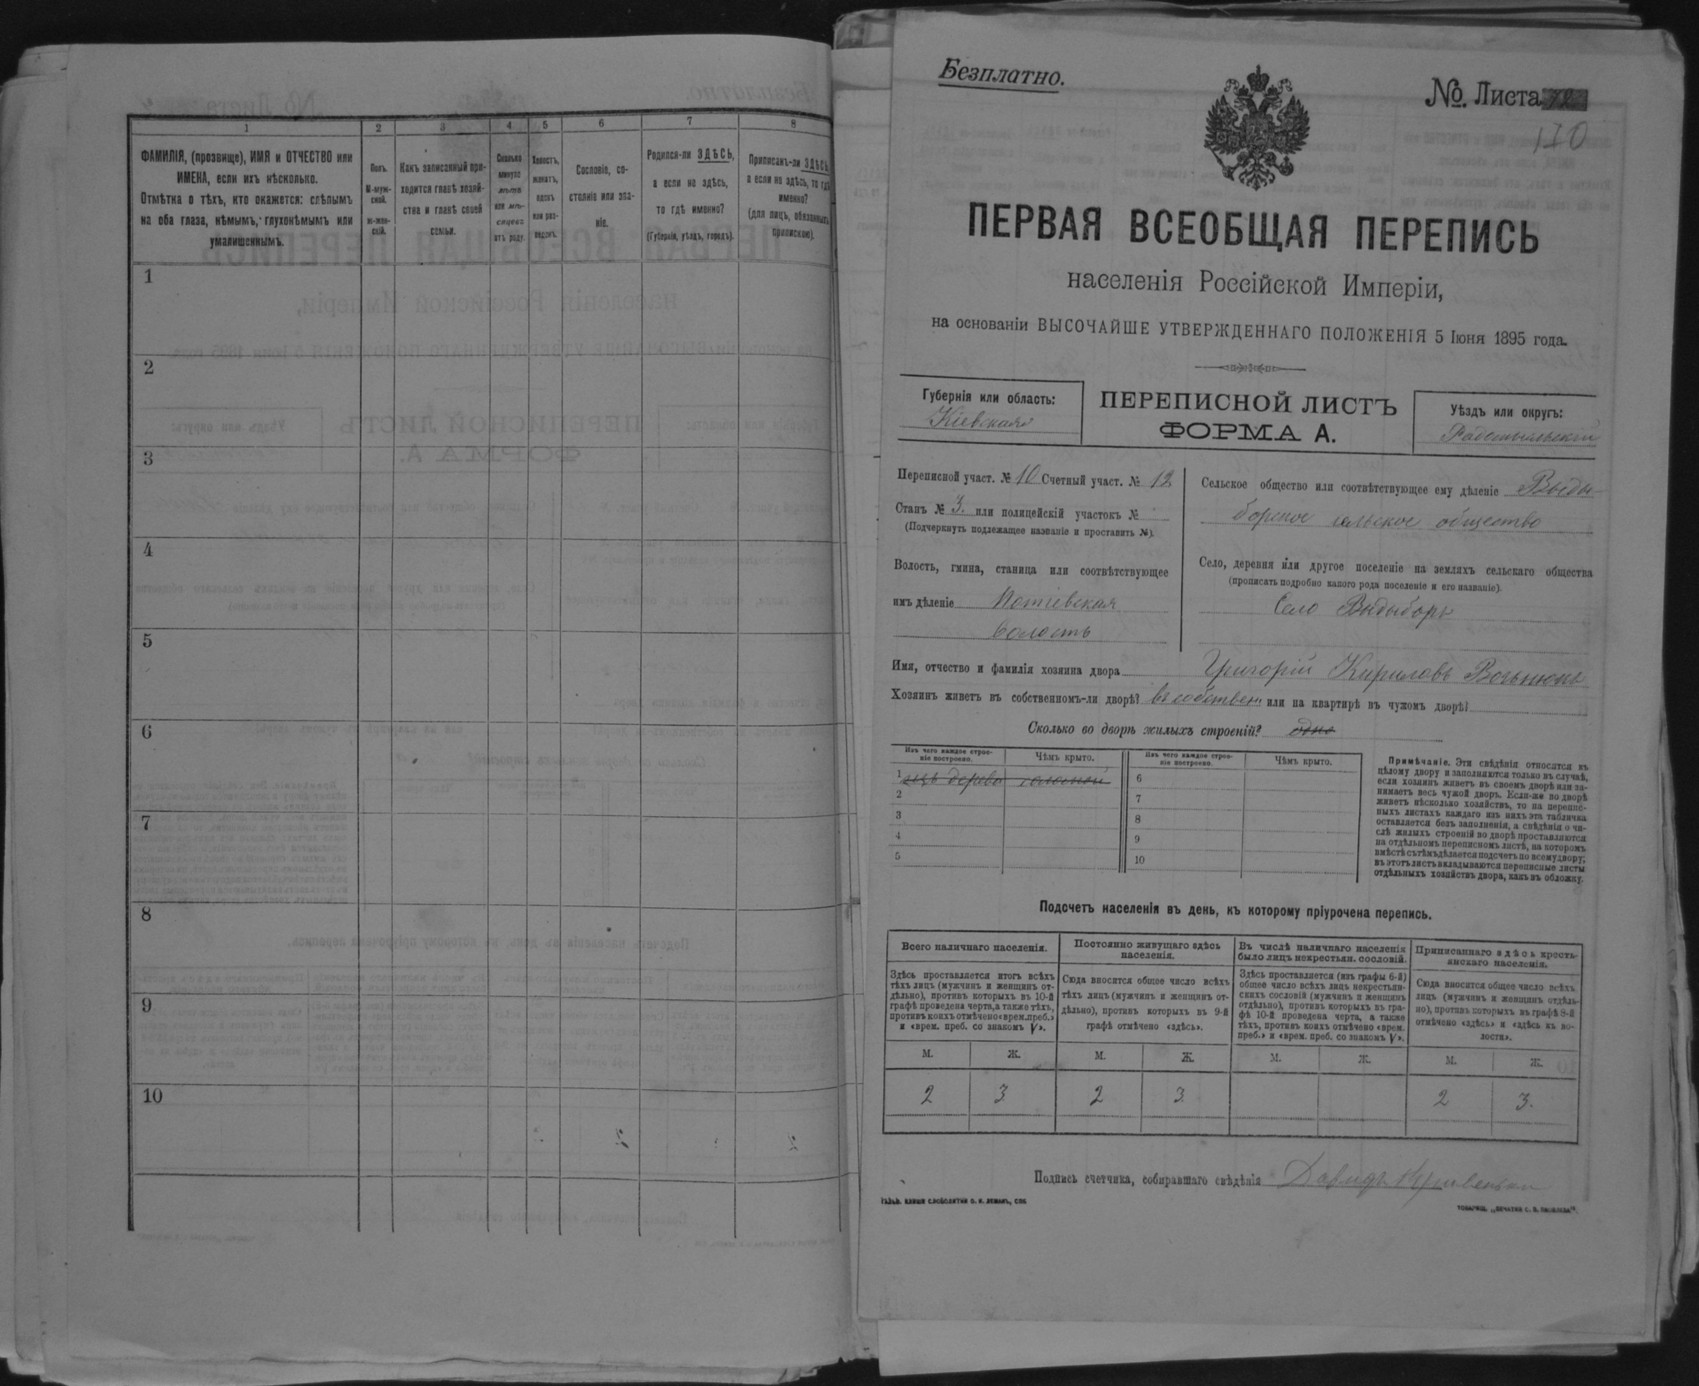 1 2 3 4 5 6 7 8
ФАМИЛІЯ, (прозвище), ИМЯ и ОТЧЕСТВО или
ИМЕНА, если ихъ нѣсколько.
Отмѣтка о тѣхъ, кто окажется: слѣпымъ
на оба глаза, нѣмымъ, глухонѣмымъ или
умалишеннымъ.
Полъ.
М-муж-
ской.
ж-жен-
скій.
Какъ записанный при-
ходится главѣ хозяй-
ства и главѣ своей
семьи.
Сколько
минуло
лѣтъ
или мѣ-
сяцевъ
отъ роду.
Холостъ,
женатъ,
вдовъ
или раз-
веденъ.
Сословіе, со-
стояніе или зва-
ніе.
Родился-ли ЗДѢСЬ,
а если не здѣсь,
то гдѣ именно?
(Губернія, уѣздъ, городъ).
Приписанъ-ли ЗДѢСЬ,
а если не здѣсь, то гдѣ
именно?
(для лицъ, обязанныхъ
припискою).
1
2
3
4
5
6
7
8
9
10
Безплатно.
№. Листа
170
ПЕРВАЯ ВСЕОБЩАЯ ПЕРЕПИСЬ
населенія Россійской Имперіи,
на основаніи ВЫСОЧАЙШЕ УТВЕРЖДЕННАГО ПОЛОЖЕНІЯ 5 Іюня 1895 года.
Губернія или область:
Кіевская
ПЕРЕПИСНОЙ ЛИСТЪ
ФОРМА А.
Уѣздъ или округъ:
Радомысльскій
Переписной участ. № 10 Счетный участ. № 12
Станъ № 3. или полицейскій участокъ №
(Подчеркнуть подлежащее названіе и проставить №).
Волость, гмина, станица или соотвѣтствующее
имъ дѣленіе Потіевская
волость
Сельское общество или соотвѣтствующее ему дѣленіе Выды-
борское сельское общество
Село, деревня или другое поселеніе на земляхъ сельскаго общества
(прописать подробно какого рода поселеніе и его названіе).
Село Выдыборъ
Имя, отчество и фамилія хозяина двора Григорій Кириловъ
Хозяинъ живетъ въ собственномъ-ли дворѣ? въ собствен. или на квартирѣ въ чужомъ дворѣ?
Сколько во дворѣ жилыхъ строеній? одно
Изъ чего каждое строе-
ніе построено.
Чѣмъ крыто.
Изъ чего каждое строе-
ніе построено.
Чѣмъ крыто.
1 изъ дерева соломой
2
3
4
5
6
7
8
9
10
Примѣчаніе. Эти свѣдѣнія относятся къ
цѣлому двору и заполняются только въ случаѣ,
если хозяинъ живетъ въ своемъ дворѣ или за-
нимаетъ весь чужой дворъ. Если-же во дворѣ
живетъ нѣсколько хозяйствъ, то на перепис-
ныхъ листахъ каждаго изъ нихъ эта табличка
оставляется безъ заполненія, а свѣдѣнія о чи-
слѣ жилыхъ строеній во дворѣ проставляются
на отдѣльномъ переписномъ листѣ, на которомъ
вмѣстѣ съ тѣмъ дѣлается подсчетъ по всему двору;
въ этотъ листъ вкладываются переписные листы
отдѣльныхъ хозяйствъ двора, какъ въ обложку.
Подсчетъ населенія въ день, къ которому пріурочена перепись.
Всего наличнаго населенія.
Здѣсь проставляется итогъ всѣхъ
тѣхъ лицъ (мужчинъ и женщинъ от-
дѣльно), противъ которыхъ въ 10-й
графѣ проведена черта, а также тѣхъ,
противъ коихъ отмѣчено «врем. преб.»
и «врем. преб. со знакомъ V».
Постоянно живущаго здѣсь
населенія.
Сюда вносится общее число всѣхъ
тѣхъ лицъ (мужчинъ и женщинъ от-
дѣльно), противъ которыхъ въ 9-й
графѣ отмѣчено «здѣсь».
Въ числѣ наличнаго населенія
было лицъ некрестьян. сословій.
Здѣсь проставляется (изъ графы 6-й)
общее число всѣхъ лицъ некрестьян-
скихъ сословій (мужчинъ и женщинъ
отдѣльно), противъ которыхъ въ гра-
фѣ 10-й проведена черта, а также
тѣхъ, противъ коихъ отмѣчено «врем.
преб.» и «врем. преб. со знакомъ V».
Приписаннаго здѣсь кресть-
янскаго населенія.
Сюда вносится общее число всѣхъ
лицъ (мужчинъ и женщинъ отдѣль-
но), противъ которыхъ въ графѣ 8-й
отмѣчено «здѣсь» и «здѣсь въ во-
лости».
М. Ж. М. Ж. М. Ж. М. Ж.
2 3 2 3 2 3.
Подпись счетчика, собиравшаго свѣдѣнія Давидъ